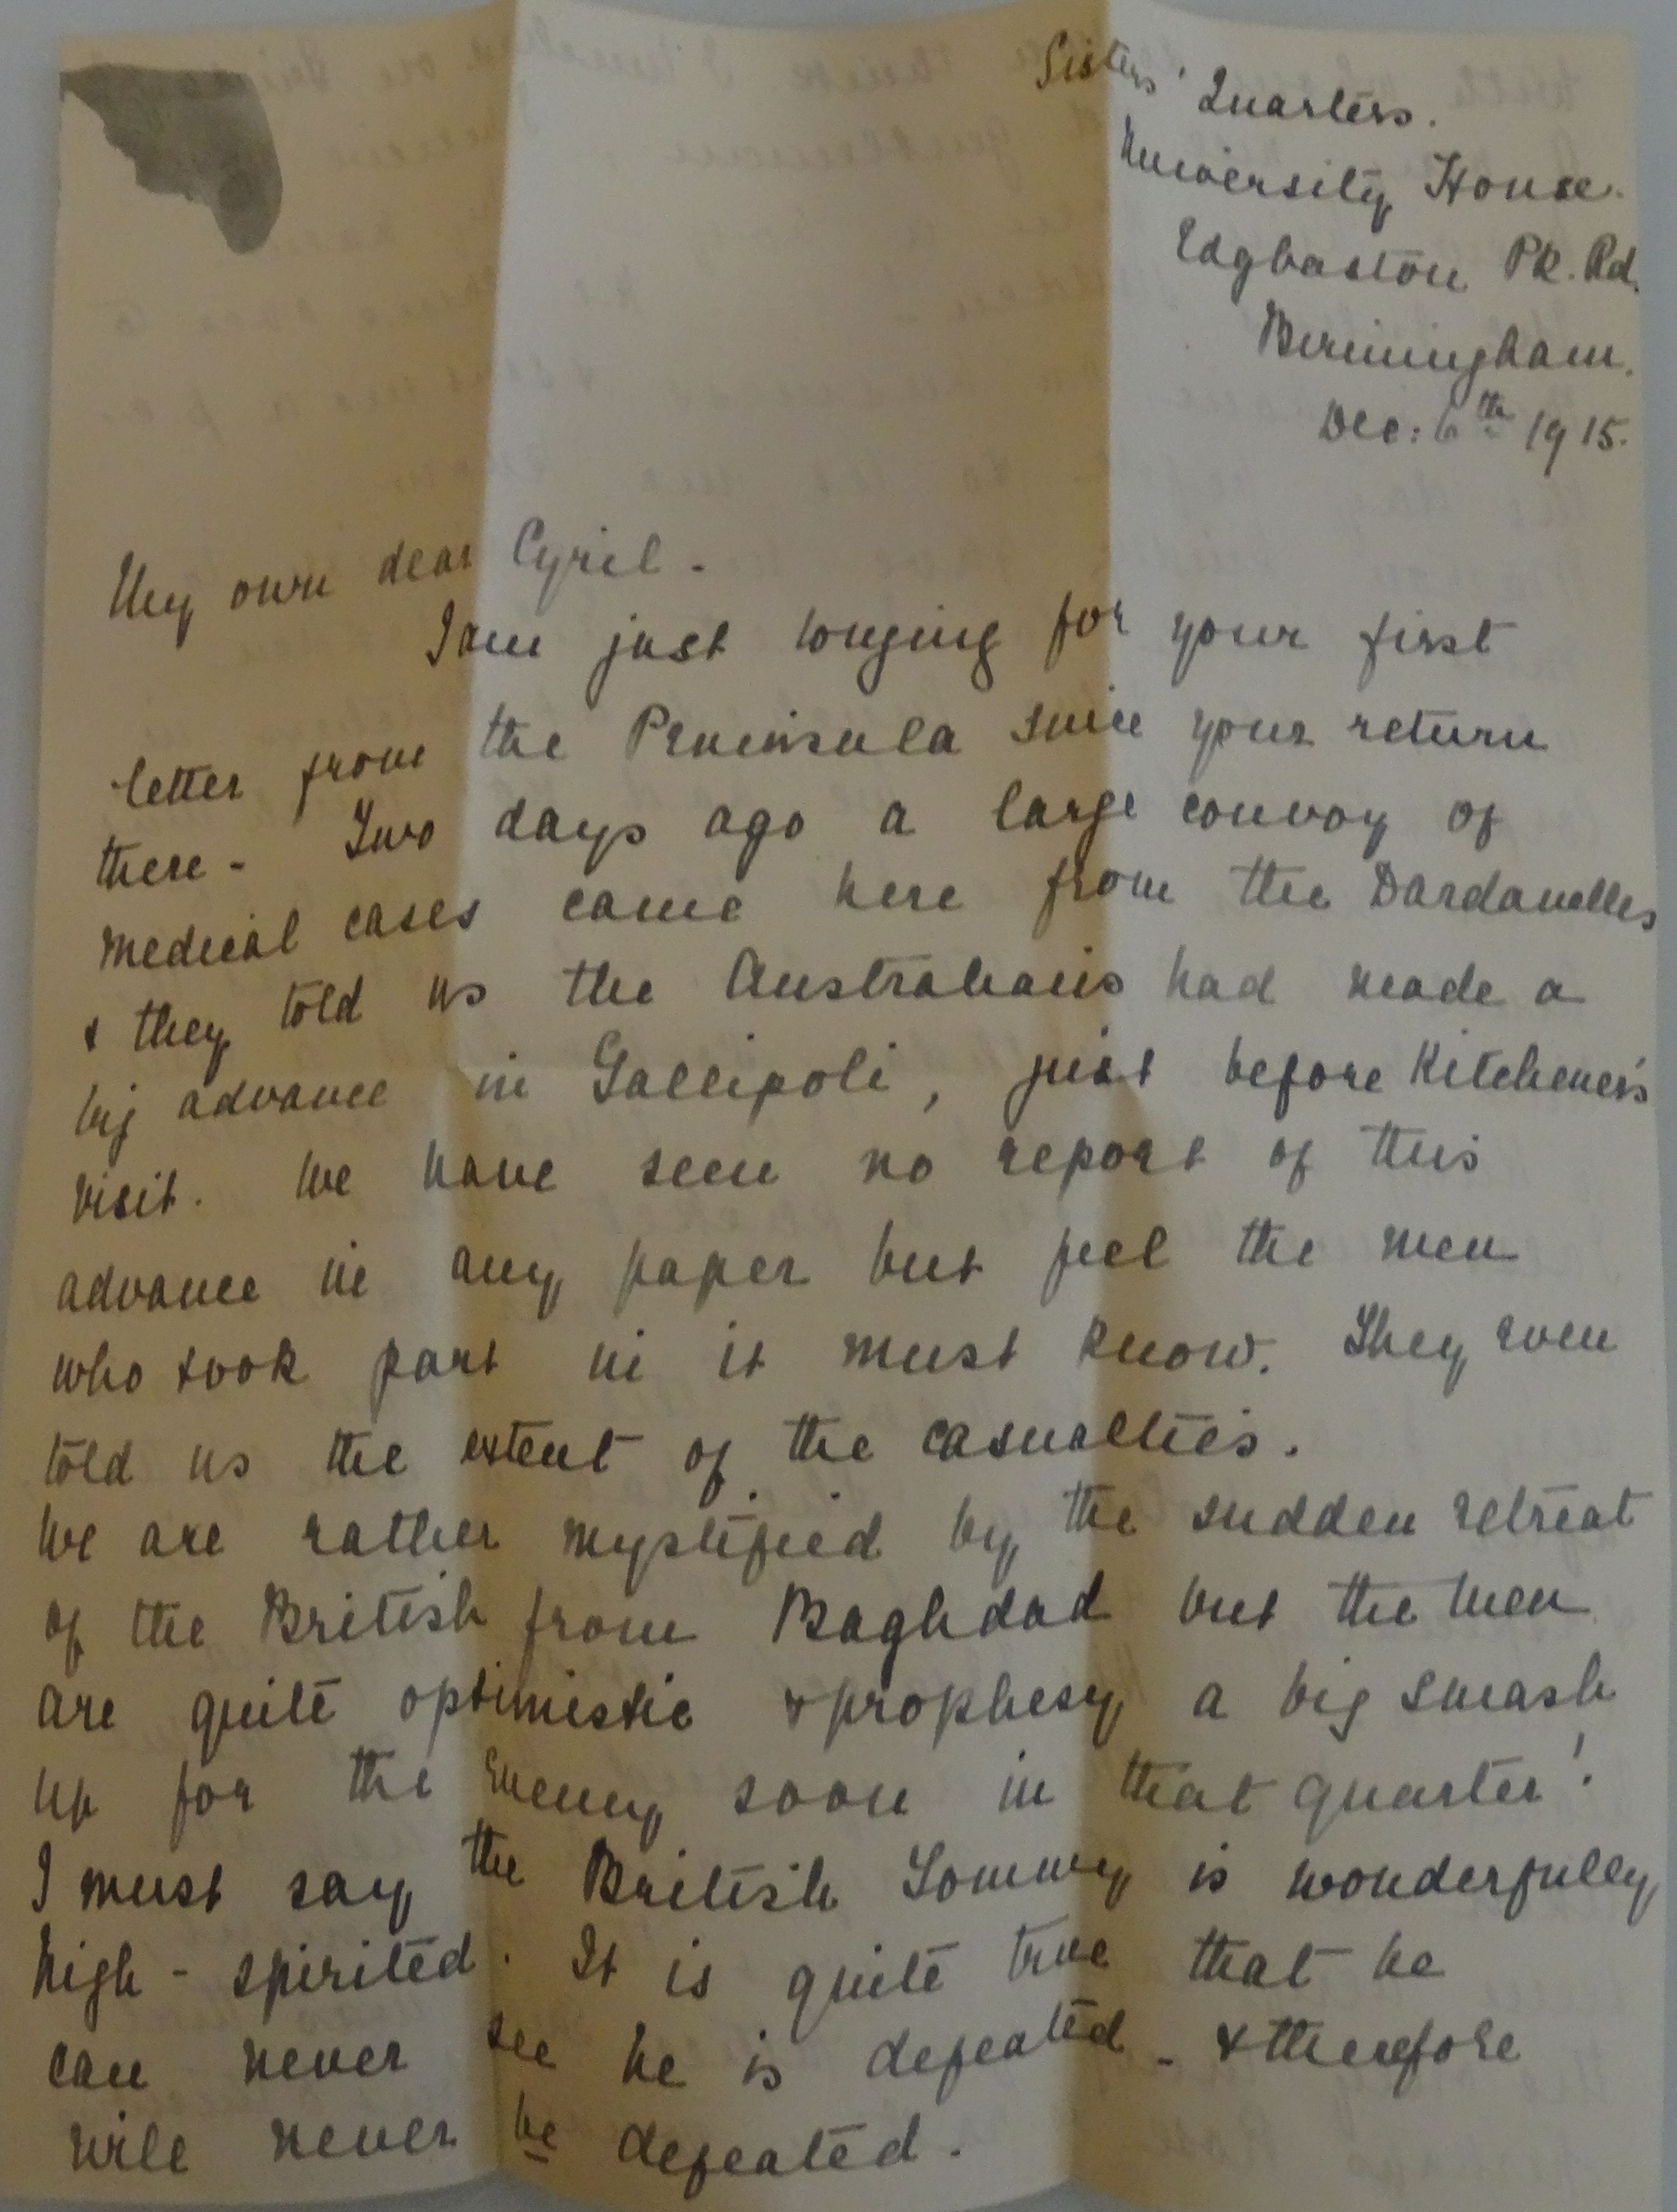 Sisters' Quarters.
University House.
Edgbaston Pk. Rd.
Birmingham.
Dec: 6th 1915.
My own dear Cyril -
I am just longing for your first
letter from the Peninsula since your return
there - Two days ago a large convoy of
medical cases came here from the Dardanelles
& they told us the Australians had made a
big advance in Gallipoli, just before Kitchener's
visit. We have seen no report of this
advance in any paper but feel the men
who took part in it must know. They even
told us the extent of the casualties.
We are rather mystified by the sudden retreat
of the British from Baghdad but the men
are quite optimistic & prophesy a big smash
up for the enemy soon in that quarter!
I must say the British Tommy is wonderfully
high-spirited. It is quite true that he
can never see he is defeated - & therefore
will never be defeated.